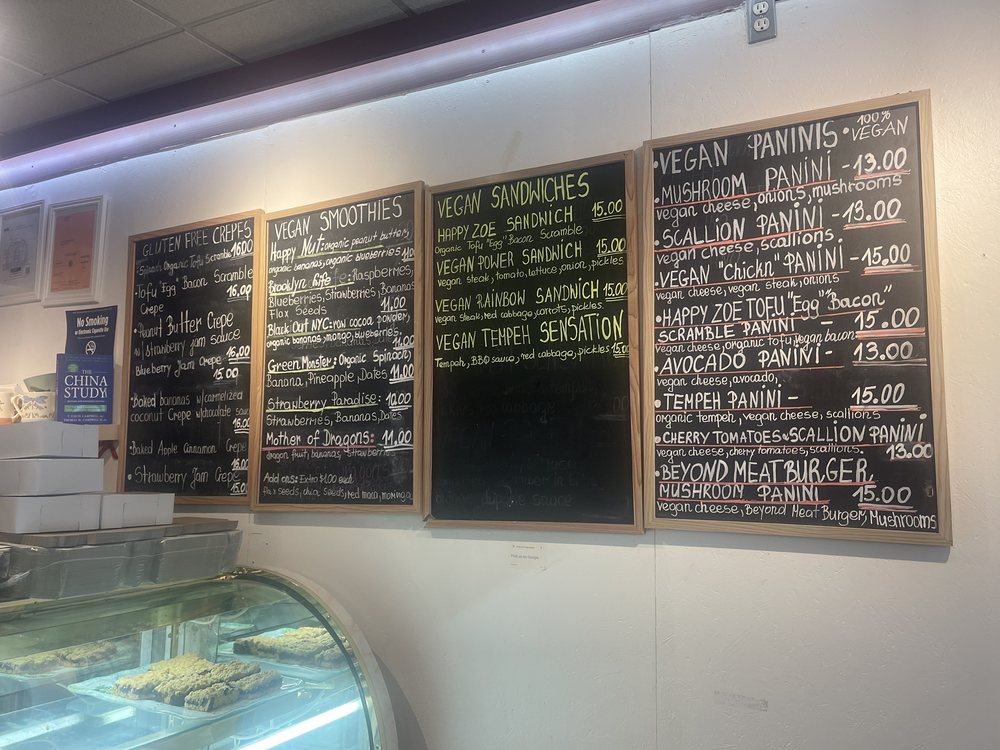 GLUTEN FREE CREPES
• Spinach Organic Tofu Scramble 16.00
• Tofu "Egg" Bacon Scramble
Crepe 16.00
• Peanut Butter Crepe
w/ strawberry jam sauce
16.00
Blueberry Jam Crepe
15.00
• Baked bananas w/carmelized
coconut Crepe w/chocolate sauce
16.00
• Baked Apple Cinnamon Crepe
15.00
• Strawberry Jam Crepe
15.00
VEGAN SMOOTHIES
Happy Nut: organic peanut butter,
organic bananas, organic blueberries
Brooklyn Life: Raspberries,
Blueberries, Strawberries, Bananas
Flax Seeds 11.00
Black Out NYC: raw cocoa powder,
organic bananas, mango, blueberries
11.00
Green Monster: organic Spinach,
Banana, Pineapple, Dates 11.00
Strawberry Paradise:
Strawberries, Bananas, Dates
Mother of Dragons: 11.00
dragon fruit, bananas, strawberries
Add ons: Extra $1.00 each
flax seeds, chia seeds, red maca, moringa
VEGAN SANDWICHES
HAPPY ZOE SANDWICH 15.00
Organic Tofu "Egg" Bacon Scramble
VEGAN POWER SANDWICH 15.00
vegan steak, tomato, lettuce, onion, pickles
VEGAN RAINBOW SANDWICH 15.00
vegan steak, red cabbage, carrots, pickles
VEGAN TEMPEH SENSATION
Tempeh, BBQ sauce, red cabbage, pickles 15.00
• VEGAN PANINIS • 100% VEGAN
• MUSHROOM PANINI - 13.00
vegan cheese, onions, mushrooms
• SCALLION PANINI - 13.00
vegan cheese, scallions.
• VEGAN "Chickn" PANINI - 15.00
vegan cheese, vegan steak, onions
• HAPPY ZOE TOFU "Egg" "Bacon"
SCRAMBLE PANINI - 15.00
vegan cheese, organic tofu, vegan bacon
• AVOCADO PANINI - 13.00
vegan cheese, avocado,
• TEMPEH PANINI - 15.00
organic tempeh, vegan cheese, scallions
• CHERRY TOMATOES & SCALLION PANINI
vegan cheese, cherry tomatoes, scallions. 13.00
• BEYOND MEAT BURGER
MUSHROOM PANINI 15.00
vegan cheese, Beyond Meat Burger, Mushrooms
No Smoking
or Electronic Cigarette Use
THE
CHINA
STUDY